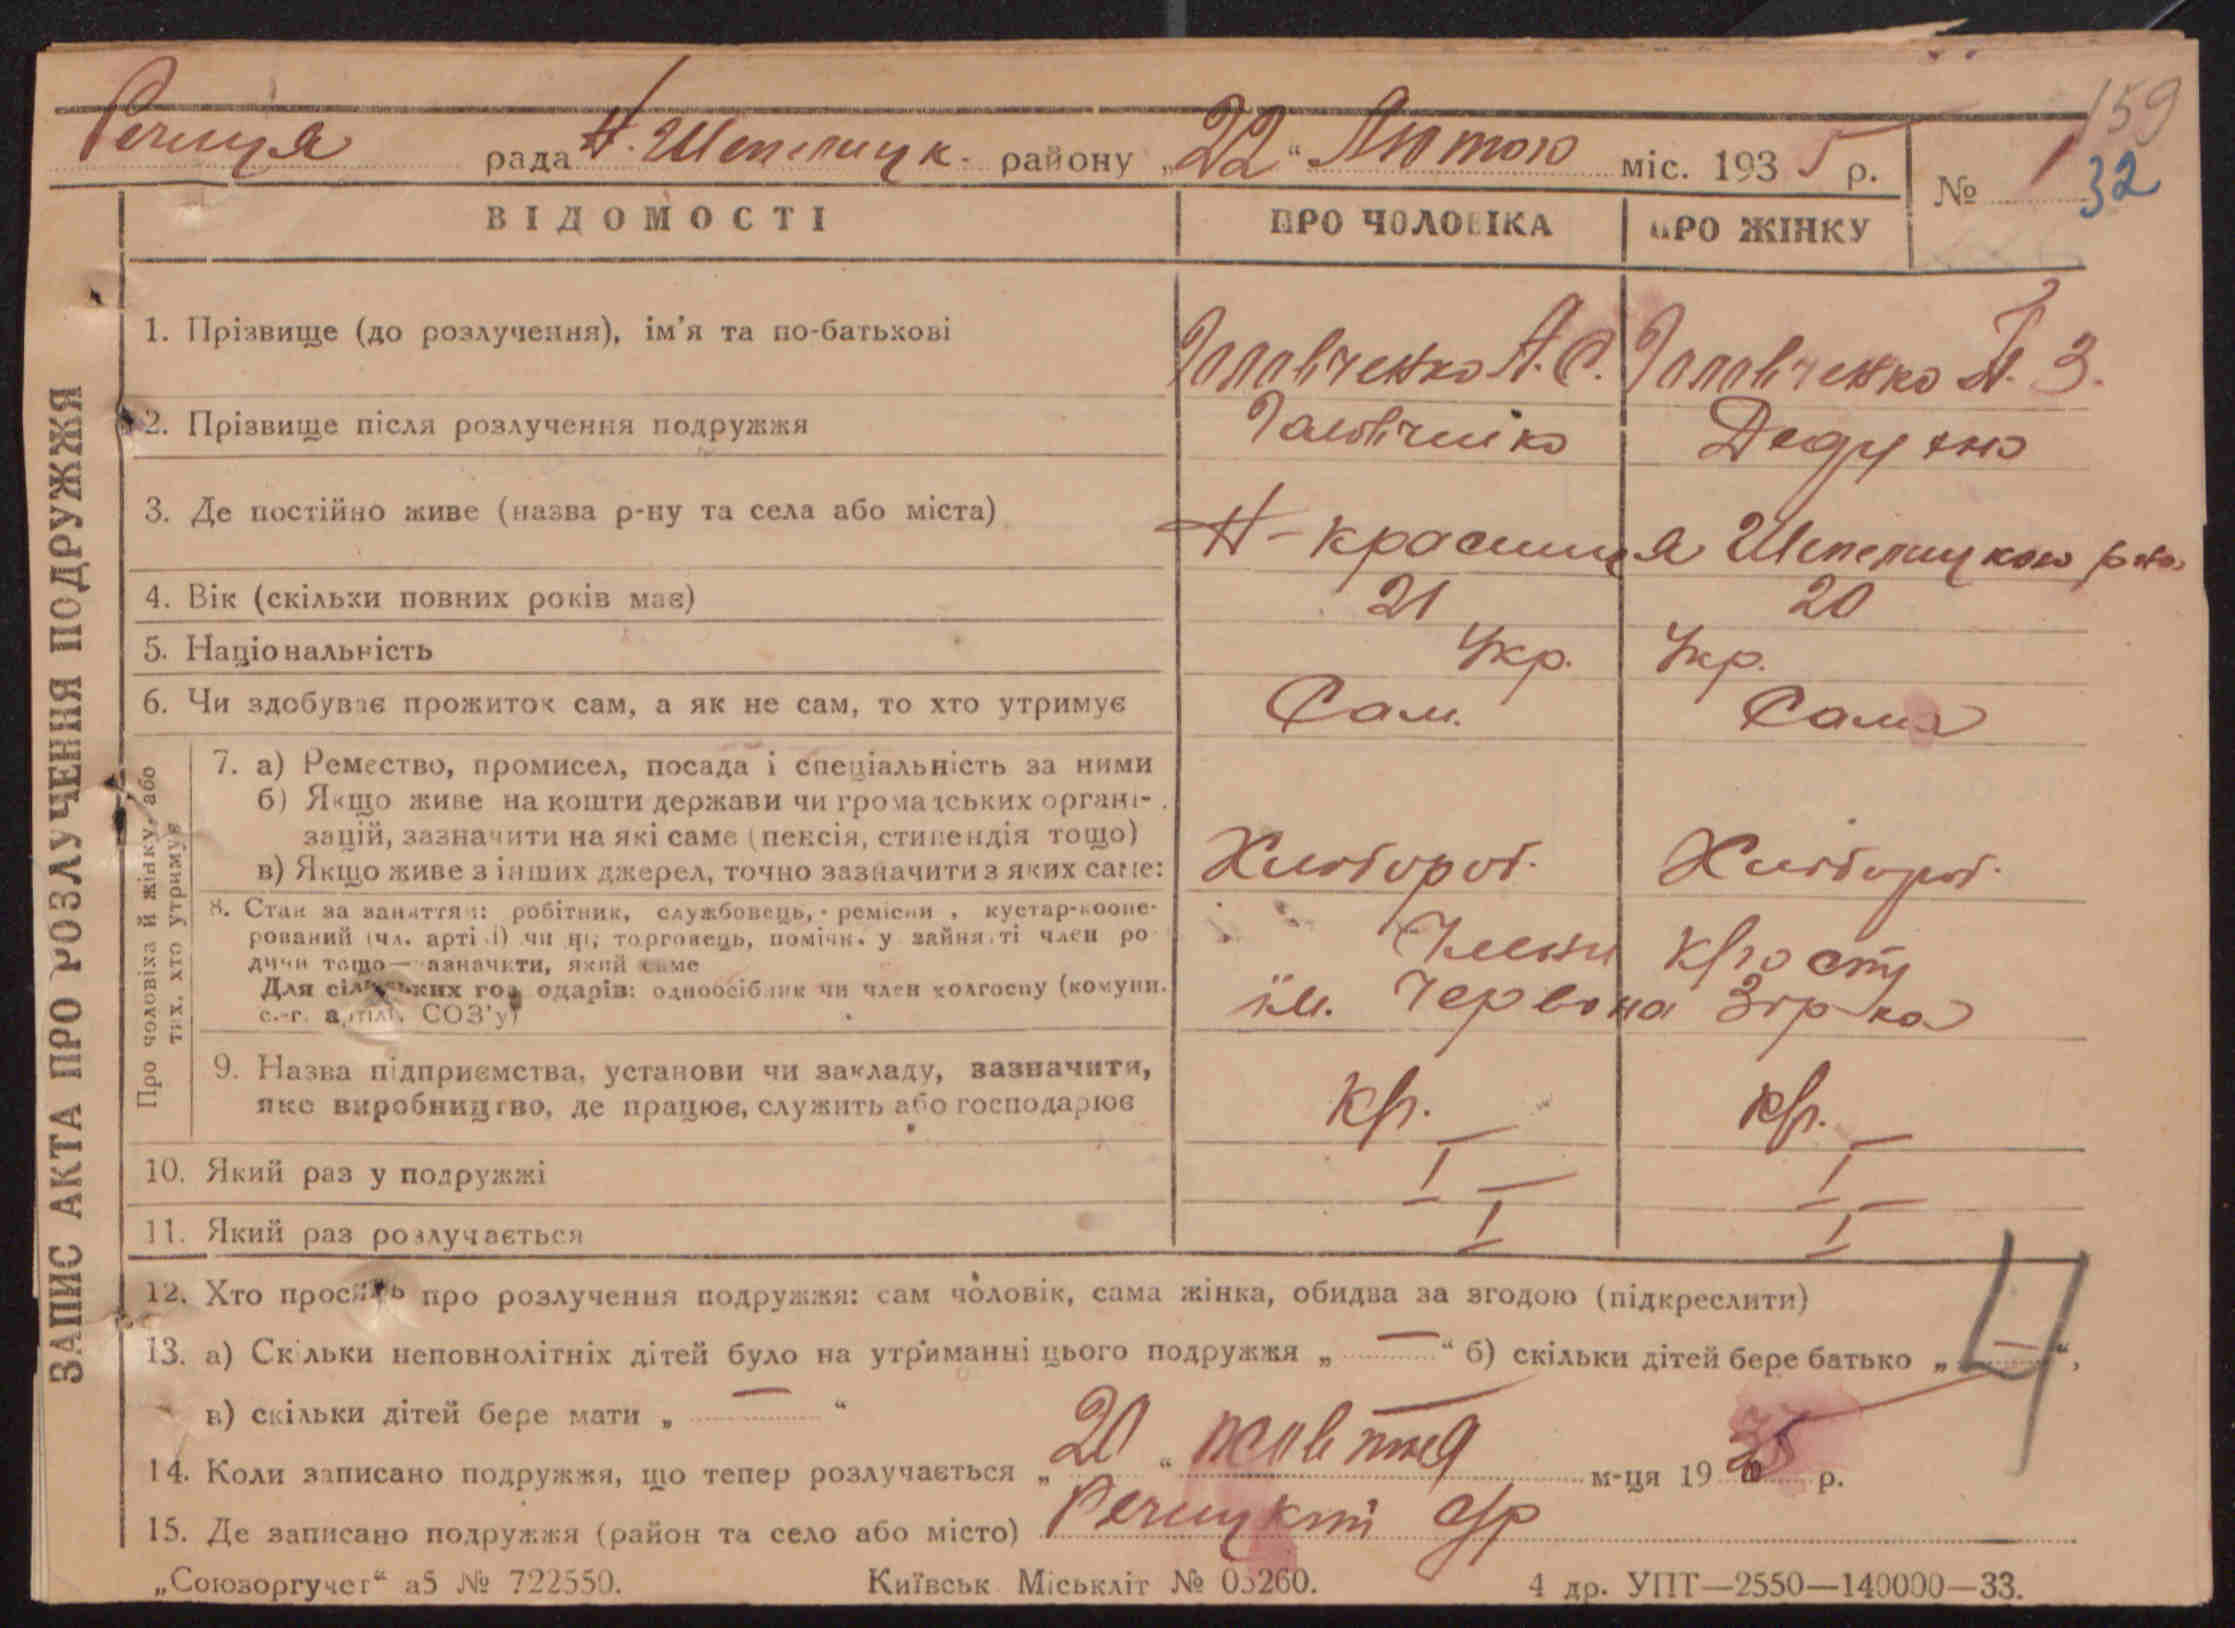 159
Речиця рада Н. Шепелицк. району „22“ Лютого міс. 1935 р. № 1 32
ВІДОМОСТІ ПРО ЧОЛОВІКА ПРО ЖІНКУ
1. Прізвище (до розлучення), ім'я та по-батькові Головченко А. С. Головченко П. З.
2. Прізвище після розлучення подружжя
3. Де постійно живе (назва р-ну та села або міста) Н-Красниця Шепелицкого р-на
4. Вік (скільки повних років має) 21 20
5. Національність Укр. Укр.
6. Чи здобуває прожиток сам, а як не сам, то хто утримує Сам. Сама
7. а) Ремество, промисел, посада і спеціальність за ними
б) Якщо живе на кошти держави чи громадських органі-
зацій, зазначити на які саме (пенсія, стипендія тощо)
в) Якщо живе з інших джерел, точно зазначити з яких саме: Хлібороб. Хлібороб.
8. Стан за заняттям: робітник, службовець, ремісни , кустар-коопе-
рований (чл. артілі) чи ні; торговець, помічн. у зайнятті член ро
дини тощо—зазначити, який саме Члени
Для сільських господарів: одноосібник чи член колгоспу (комуни.
с.-г. артілі, СОЗ'у) ім. Червона Зірка
9. Назва підприємства, установи чи закладу, зазначити,
яке виробництво, де працює, служить або господарює
10. Який раз у подружжі I I
11. Який раз розлучається I I
Про чоловіка й жінку, або
тих, хто утримує
12. Хто просить про розлучення подружжя: сам чоловік, сама жінка, обидва за згодою (підкреслити)
13. а) Скільки неповнолітніх дітей було на утриманні цього подружжя „ — “ б) скільки дітей бере батько „ — “,
в) скільки дітей бере мати „ — “
14. Коли записано подружжя, що тепер розлучається „20“ жовтня м-ця 19 р.
15. Де записано подружжя (район та село або місто) Речицкий с/р
„Союзоргучет“ а5 № 722550. Київськ Міськліт № 03260. 4 др. УПТ—2550—140000—33.
ЗАПИС АКТА ПРО РОЗЛУЧЕННЯ ПОДРУЖЖЯ
4